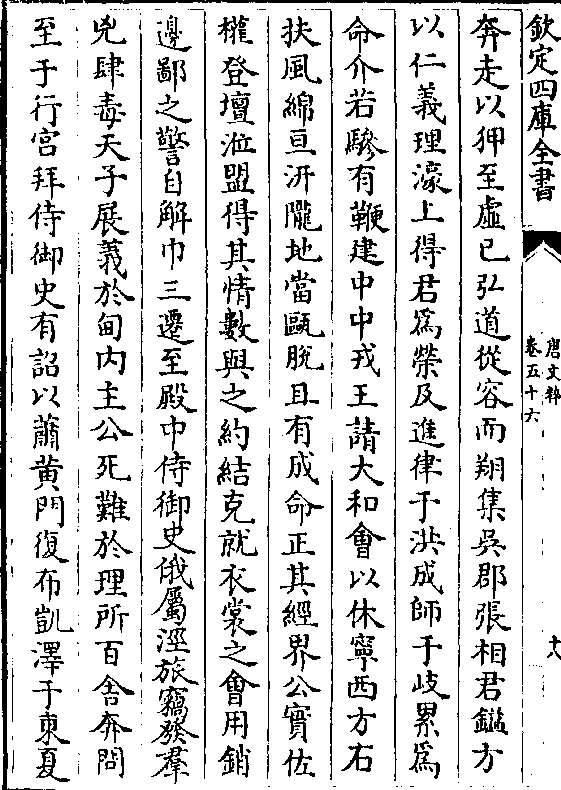 欽定四庫全書
唐文粹
卷五十六
十八
奔走以狎至虛已弘道從容而翔集吳郡張相君鎰方
以仁義理濠上得君為榮及進律于洪成師于岐累為
命介若驂有鞭建中中戎王請大和會以休寧西方右
扶風綿亘汧隴地當甌脫且有成命正其經界公實佐
權登壇涖盟得其情數與之約結克就衣裳之會用銷
邊鄙之警自解巾三遷至殿中侍御史俄屬涇旅竊發羣
兇肆毒天子展義於甸内主公死難於理所百舍奔問
至于行宮拜侍御史有詔以蕭黄門復布凱澤于東夏